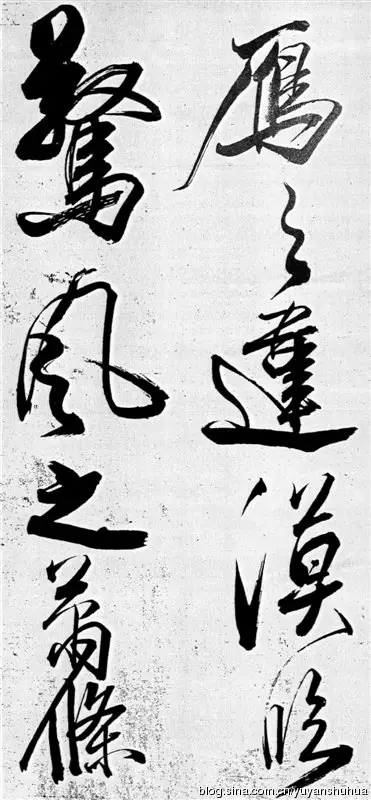 鴈之違漠臨
驚風之蕭條
blog.sina.com.cn/yuyanshuhua